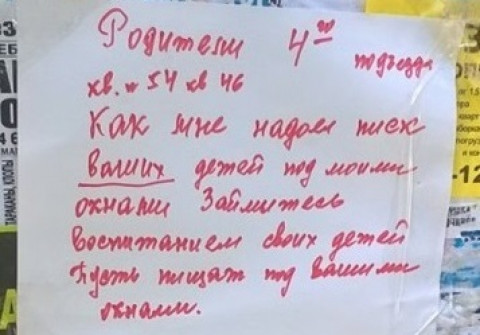 Родители 4го подъезда
кв. и 54 кв 46
Как мне надоел писк
ваших детей под моими
окнами Займитесь
воспитанием своих детей
Пусть пищат под вашими
окнами.